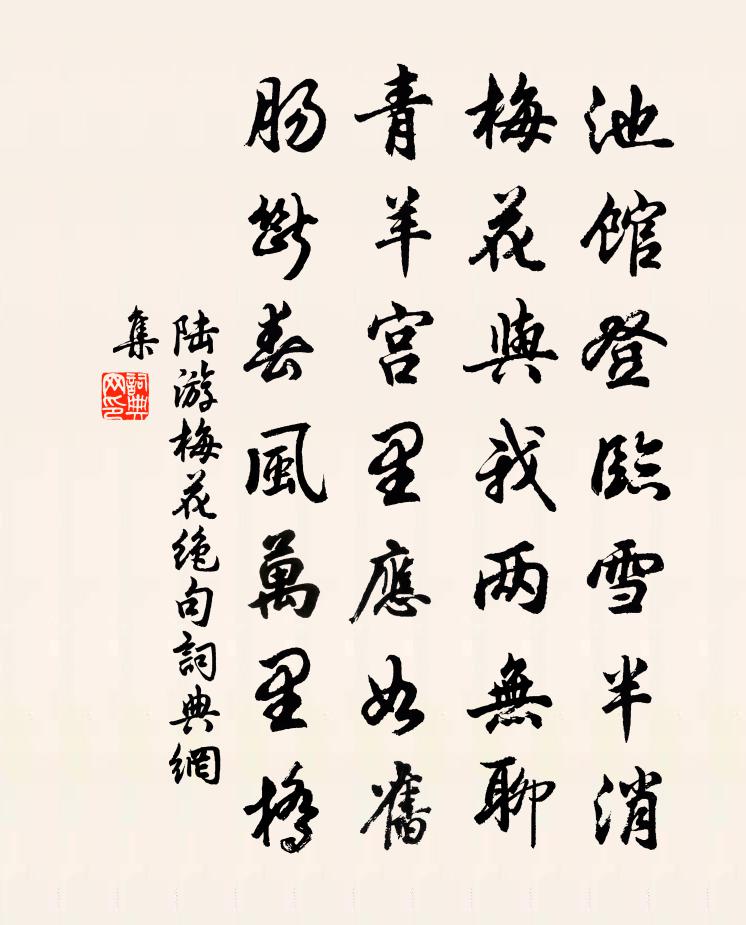 池館登臨雪半消
梅花與我两無聊
青羊宮里應如舊
腸斷春風萬里橋
陆游梅花绝句詞典網
集
詞典
网印